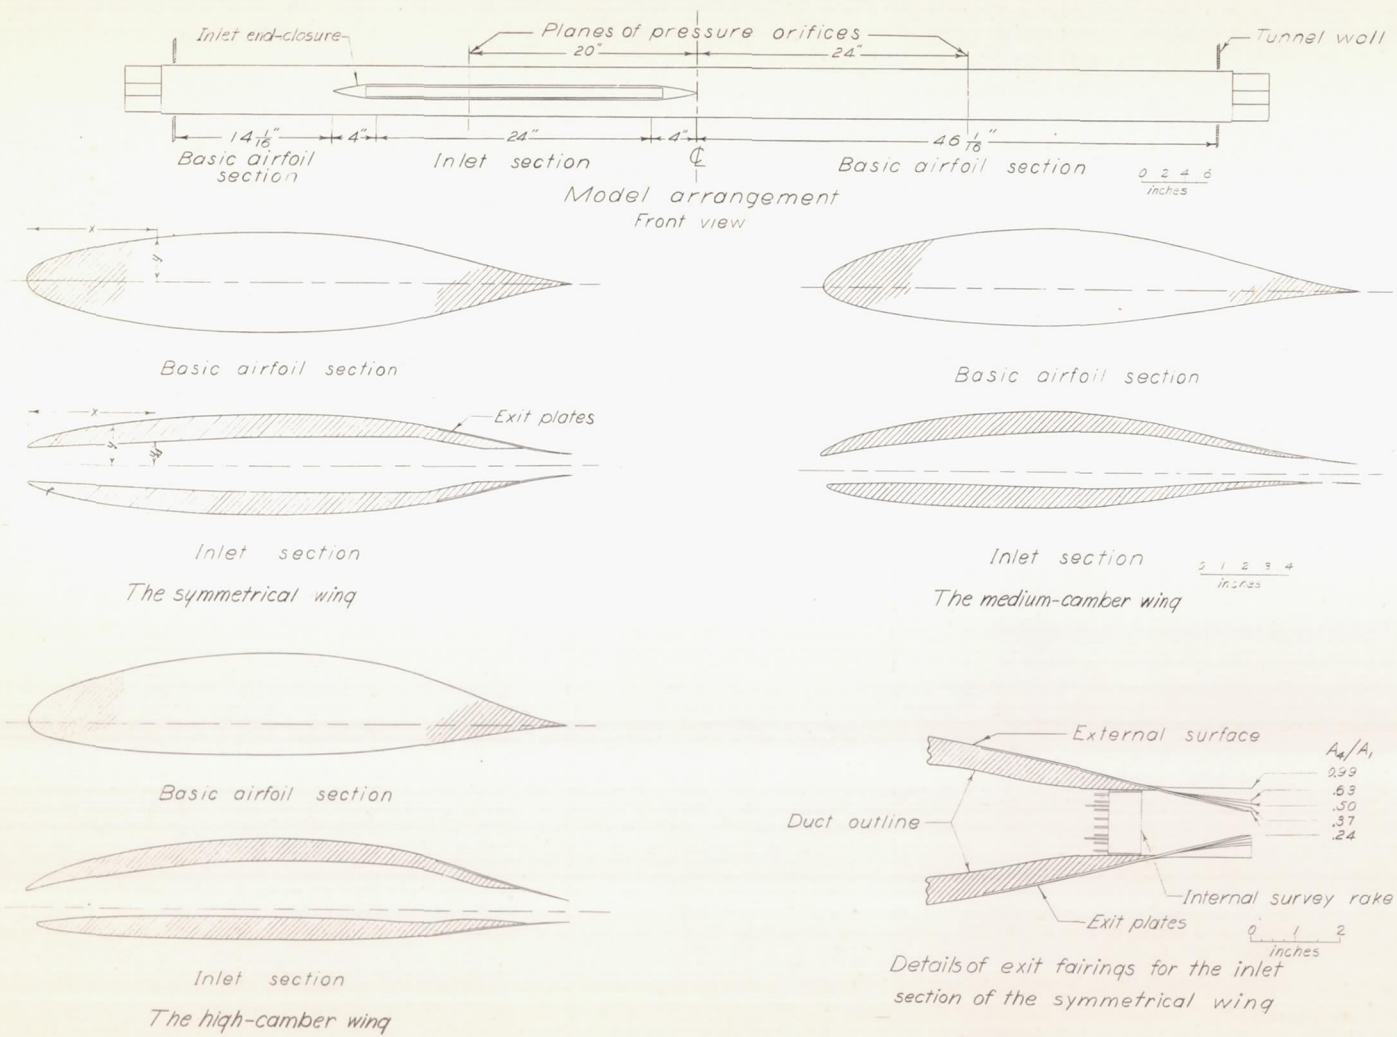 Inlet end-closure
Planes of pressure orifices
Tunnel wall
20"
24"
14 1/16"
4"
24"
4"
46 1/16"
Basic airfoil
section
Inlet section
℄
Basic airfoil section
0 2 4 6
inches
Model arrangement
Front view
x
y
Basic airfoil section
Basic airfoil section
x
Exit plates
y
Inlet section
The symmetrical wing
Inlet section
0 1 2 3 4
inches
The medium-camber wing
Basic airfoil section
Inlet section
The high-camber wing
External surface
A4/A1
0.99
.63
.50
.37
.24
Duct outline
Internal survey rake
Exit plates
0 1 2
inches
Details of exit fairings for the inlet
section of the symmetrical wing